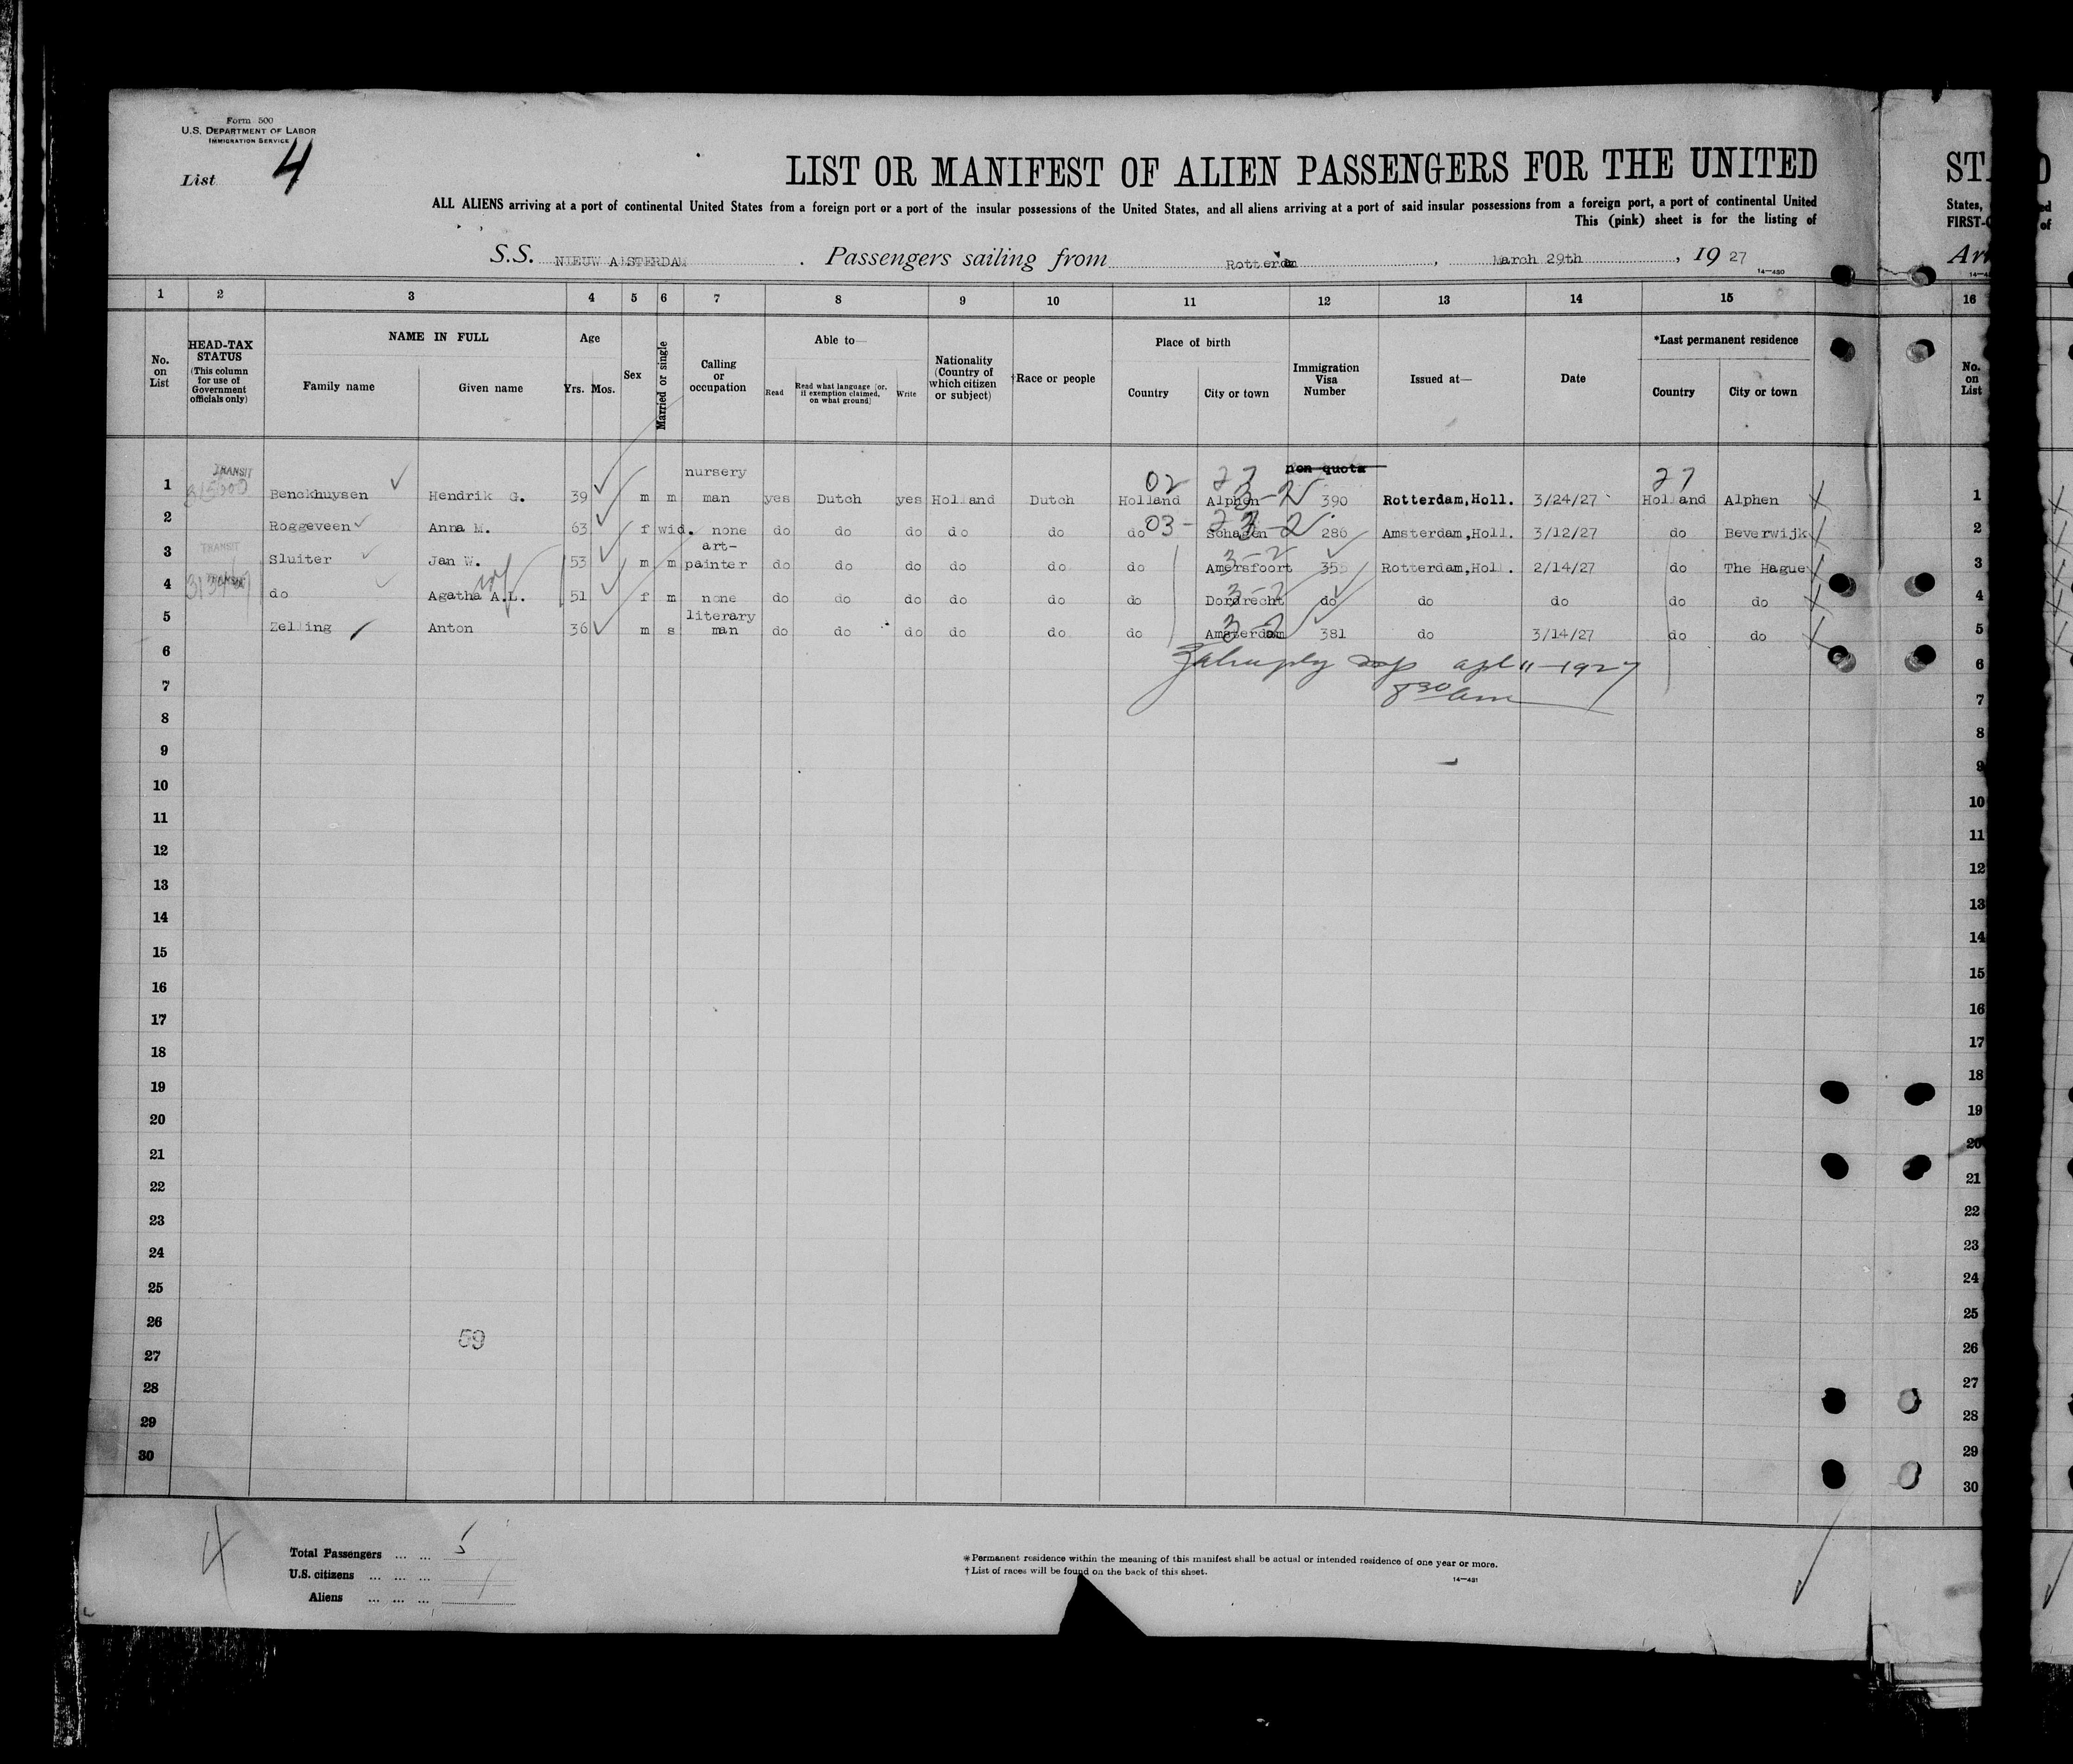 Form 500
U.S. DEPARTMENT OF LABOR
IMMIGRATION SERVICE
List 4
LIST OR MANIFEST OF ALIEN PASSENGERS FOR THE UNITED
ALL ALIENS arriving at a port of continental United States from a foreign port or a port of the insular possessions of the United States, and all aliens arriving at a port of said insular possessions from a foreign port, a port of continental United
This (pink) sheet is for the listing of
States,
FIRST-
S.S. NIEUW AMSTERDAM . Passengers sailing from Rotterdam , March 29th , 19 27
14—480
1 2 3 4 5 6 7 8 9 10 11 12 13 14 15 16
No. on List
HEAD-TAX STATUS (This column for use of Government officials only)
NAME IN FULL
Family name Given name
Age
Yrs. Mos.
Sex
Married or single
Calling or occupation
Able to—
Read Read what language (or, if exemption claimed, on what ground) Write
Nationality (Country of which citizen or subject)
†Race or people
Place of birth
Country City or town
Immigration Visa Number
Issued at—
Date
*Last permanent residence
Country City or town
No. on List
TRANSIT nursery 02 27 non quota 27
1 Benckhuysen Hendrik G. 39 m m man yes Dutch yes Holland Dutch Holland Alphen 3-2 390 Rotterdam,Holl. 3/24/27 Holland Alphen 1
2 Roggeveen Anna M. 63 f wid. none do do do do do do 03- Schagen 286 Amsterdam,Holl. 3/12/27 do Beverwijk 2
TRANSIT art-
3 Sluiter Jan W. 53 m m painter do do do do do do Amersfoort 3-2 355 Rotterdam,Holl. 2/14/27 do The Hague 3
TRANSIT wf
4 do Agatha A.L. 51 f m none do do do do do do Dordrecht 3-2 do do do do do 4
literary
5 Zelling Anton 36 m s man do do do do do do Amsterdam 3-2 381 do 3/14/27 do do 5
6 apl 11-1927 6
7 8 30 am 7
8 8
9 9
10 10
11 11
12 12
13 13
14 14
15 15
16 16
17 17
18 18
19 19
20 20
21 21
22 22
23 23
24 24
25 25
26 26
59
27 27
28 28
29 29
30 30
4
Total Passengers ... ... 5
U.S. citizens ... ... ...
Aliens ... ... ...
*Permanent residence within the meaning of this manifest shall be actual or intended residence of one year or more.
†List of races will be found on the back of this sheet.
14—481